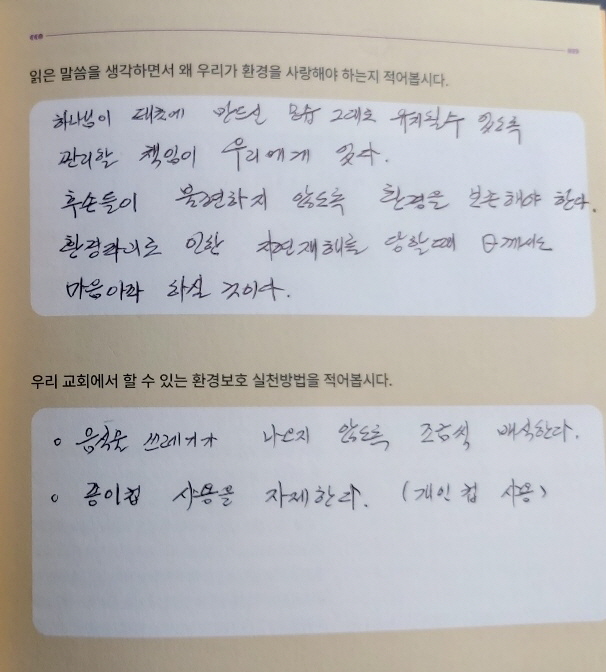 읽은 말씀을 생각하면서 왜 우리가 환경을 사랑해야 하는지 적어봅시다.
하나님이 태초에 만드신 모습 그대로 유지될수 있도록
관리할 책임이 우리에게 있다.
후손들이 불편하지 않도록 환경을 보존해야 한다.
환경파괴로 인한 자연재해를 당할때 께서도
마음아파 하실 것이다.
우리 교회에서 할 수 있는 환경보호 실천방법을 적어봅시다.
○ 음식물 쓰레기가 나오지 않도록 조금씩 배식한다.
○ 종이컵 사용을 자제한다. (개인 컵 사용)